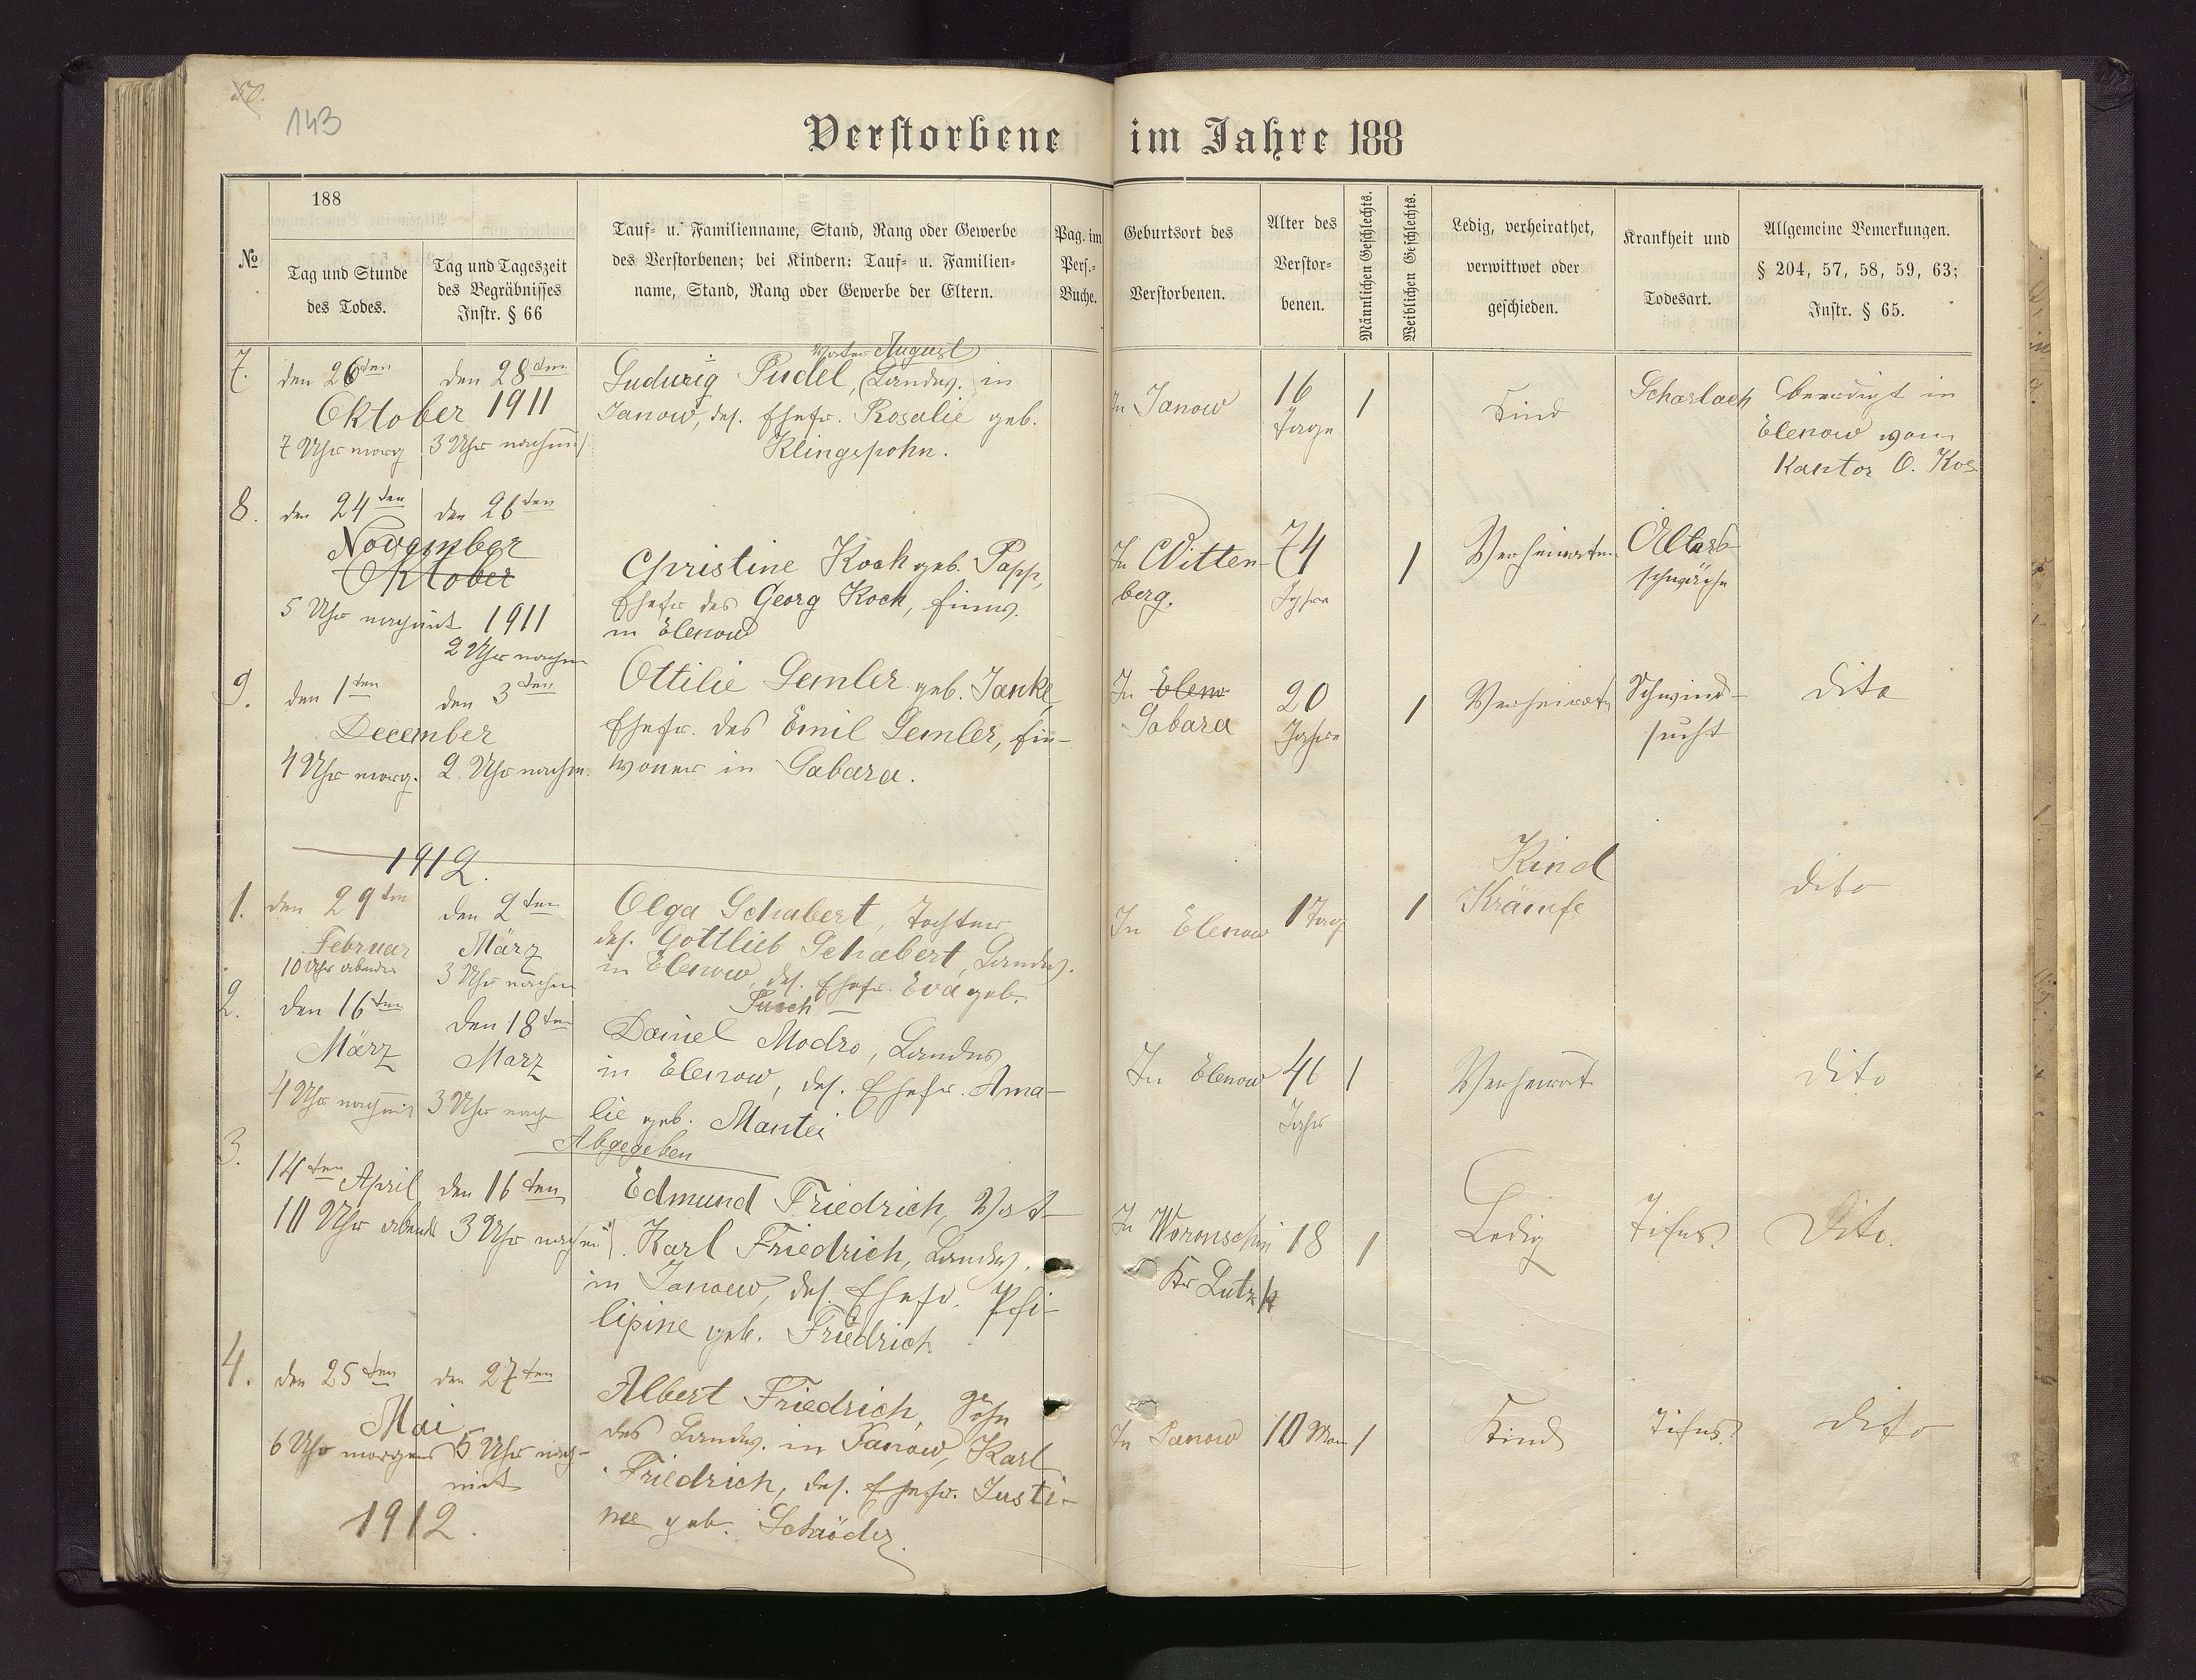 143
Verstorbene im Jahre 188
№
188
Tag und Stunde
des Todes.
Tag und Tageszeit
des Begräbnisses
Instr. § 66
Tauf- u. Familienname, Stand, Rang oder Gewerbe
des Verstorbenen; bei Kindern: Tauf- u. Familien-
name, Stand, Rang oder Gewerbe der Eltern.
Pag. im
Pers.-
Buche.
Geburtsort des
Verstorbenen.
Alter des
Verstor-
benen.
Männlichen Geschlechts.
Weiblichen Geschlechts.
Ledig, verheirathet,
verwittwet oder
geschieden.
Krankheit und
Todesart.
Allgemeine Bemerkungen.
§ 204, 57, 58, 59, 63;
Instr. § 65.
7.
den 26ten
den 28ten
Oktober 1911
7 Uhr morg
3 Uhr nachmi
Vater August
Ludwig Pudel, Landw. in
Janow, des. Ehefr. Rosalie geb.
Klingspohn.
In Janow
16
Tage
1
Kind
Scharlach
beerdigt in
Elenow vom
Kantor O. Kos
8.
den 24ten
den 26ten
November
Oktober
5 Uhr nachmit 1911
2 Uhr nachm
Christine Koch geb. Papp,
Ehefr des Georg Koch, Einw.
in Elenow
In Witten-
berg.
74
Jahre
1
Verheiraten
Alters-
schwäche
9.
den 1ten
den 3ten
December
4 Uhr morg.
2 Uhr nachm.
Ottilie Semler geb. Janke
Ehefr. des Emil Semler, Ein-
woner in Gabara.
In Elenw
Gabara
20
Jahre
1
Verheirat
Schwind-
sucht
dito
1912.
1.
den 29ten
den 2ten
Februar
März
10 Uhr abends
3 Uhr nachm
Olga Schabert, Tochter
des. Gottlieb Schabert, Landw.
in Elenow, des. Ehefr. Eva geb.
In Elenow
1 Tag
1
Kind
Krämfe
dito
2.
den 16ten
den 18ten
März
März
4 Uhr nachmi
3 Uhr nachm
Dainel Modro, Landw
in Elenow, des. Ehefr. Ama-
lie geb. Mantei
In Elenow
46
Jahr
1
Verheirat
dito
Abgegeben
3.
14ten April
den 16ten
10 Uhr abends
3 Uhr nachmi
Edmund Friedrich, Vat
Karl Friedrich, Landw.
in Janow, des. Ehefr. Phi-
lipine geb. Friedrich
In Woronschin
Kr Lutzk
18
1
Ledig
Tifus.
Dito.
4.
den 25ten
den 27ten
Mai
6 Uhr morgens
5 Uhr nach-
mit
1912.
Albert Friedrich, Sohn
des Landw. in Janow, Karl
Friedrich, des. Ehefr. Justi-
ne geb. Schröder
In Janow
10 Mon
1
Kind
Tifus.
dito